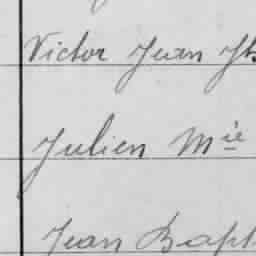 Victor Jean Jh
Julien Mie
Jean Bapt